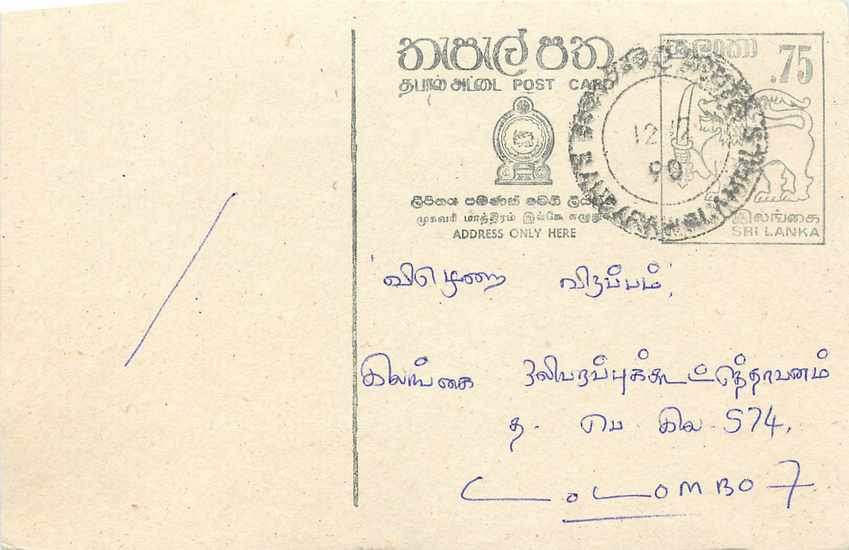 තැපැල් පත
தபால் அட்டை POST CARD
ලිපිනය පමණක් මෙහි ලියන්න
முகவரி மாத்திரம் இங்கே எழுதுக
ADDRESS ONLY HERE
ශ්‍රී ලංකා
.75
இலங்கை
SRI LANKA
12 12
90
விருப்பம்'
இலங்கை ஒலிபரப்புக்கூட்டுத்தாபனம்
த. பெ இல 574,
COLOMBO 7